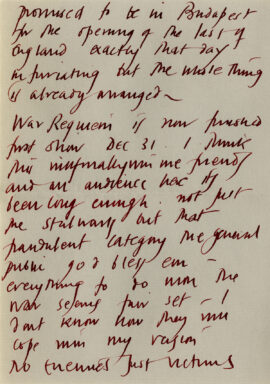 promised to be in Budapest
for the opening of the last of
England exactly that day
infuriating but the whole thing
is already arranged ~
War Requiem is now finished
first show Dec 31. I think
this informally with me friends
and an audience has it
been long enough. not just
the stalwarts but that
fraudulent category the general
public god bless em –
everything to do with the
war seems fair set – I
dont know how they will
cope with my version
No Enemies Just victims